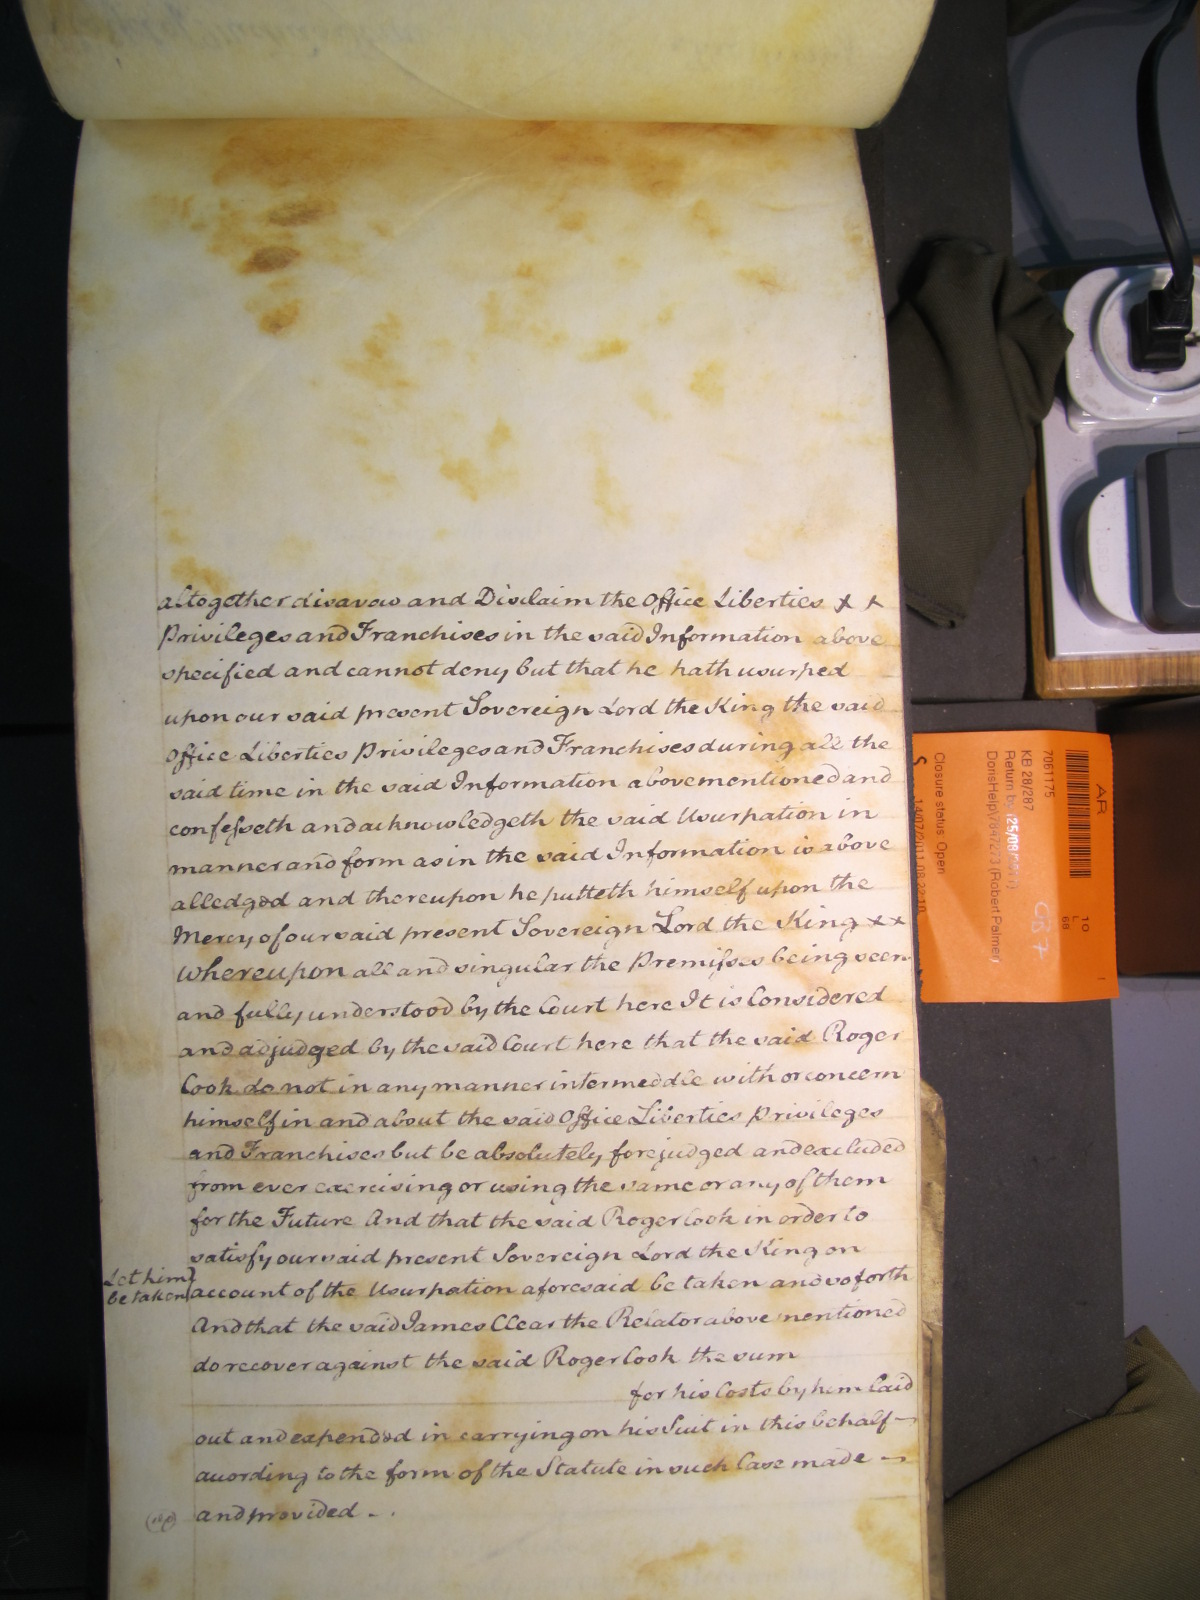 altogether disavow and Disclaim the Office Liberties x x
Privileges and Franchises in the said Information above
specified and cannot deny but that he hath usurped
upon our said present Sovereign Lord the King the said
Office Liberties Privileges and Franchises during all the
said time in the said Information above mentioned and
confesseth and acknowledgeth the said Usurpation in
manner and form as in the said Information is above
alledged and thereupon he putteth himself upon the
Mercy of our said present Sovereign Lord the King x x
Whereupon all and singular the Premisses being seen
and fully understood by the Court here It is Considered
and adjudged by the said Court here that the said Roger
Cook do not in any manner intermeddle with or concern
himself in and about the said Office Liberties Privileges
and Franchises but be absolutely forejudged and excluded
from ever exercising or using the same or any of them
for the Future And that the said Roger Cook in order to
satisfy our said present Sovereign Lord the King on
Let him
be taken
account of the Usurpation aforesaid be taken and so forth
And that the said James Clear the Relator above mentioned
do recover against the said Roger Cook the sum
for his Costs by him laid
out and expended in carrying on his Suit in this behalf -
according to the form of the Statute in such Case made -
and provided - .
AR
7061175
KB 28/287
Return by
(Robert Palmer)
Closure status: Open